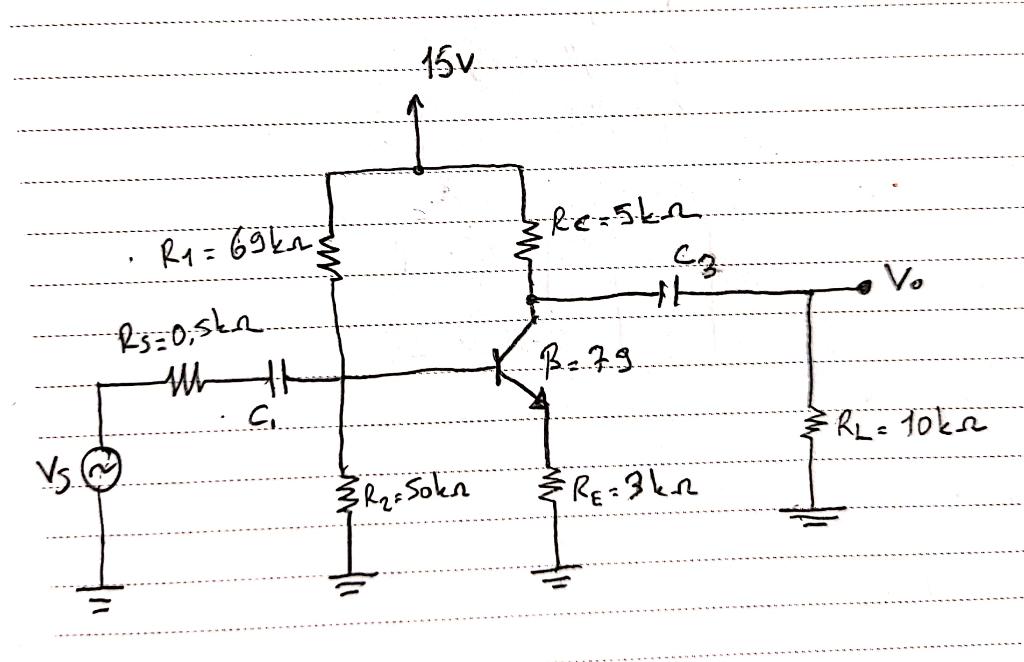 15V
R1 = 69kΩ
RC = 5kΩ
C3
Vo
RS = 0,5kΩ
β = 79
C1
VS
RL = 10kΩ
R2 = 50kΩ
RE = 3kΩ